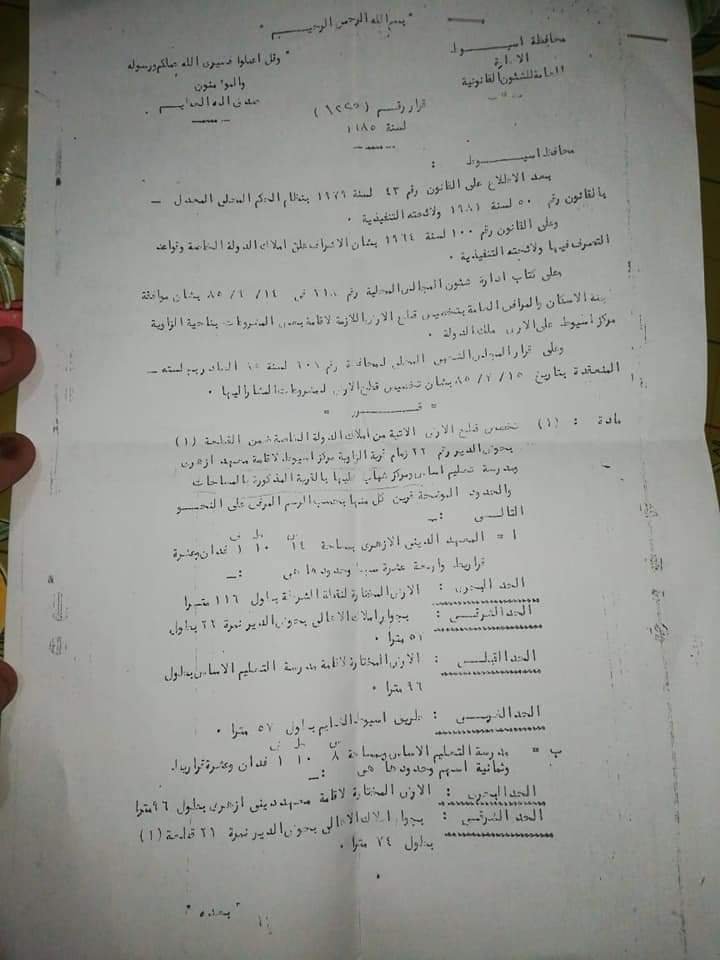 " بسم الله الرحمن الرحيم "
محافظة اسيوط
الادارة
العامة للشئون القانونية
" وقل اعملوا فسيرى الله عملكم ورسوله
والمؤمنون
صدق الله العظيم
قرار رقم (٦٢٢٥)
لسنة ١٩٨٥
محافظ اسيوط :
بعد الاطلاع على القانون رقم ٤٣ لسنة ١٩٧٩ بنظام الحكم المحلى المعدل –
بالقانون رقم ٥٠ لسنة ١٩٨١ ولائحته التنفيذية .
وعلى القانون رقم ١٠٠ لسنة ١٩٦٤ بشان الاشراف على املاك الدولة الخاصة وقواعد
التصرف فيها ولائحته التنفيذية .
وعلى كتاب ادارة شئون المجالس المحلية رقم ١١٨ فى ١٤ / ٤ / ٨٥ بشان موافقة
لجنة الاسكان والمرافق العامة بتخصيص قطع الارض اللازمة لاقامة بعض المشروعات بناحية الزاوية
مركز اسيوط على الارض ملك الدولة .
وعلى قرار المجلس الشعبى المحلى لمحافظة رقم ١٠١ لسنة ٨٥ الصادر بجلسته –
المنعقدة بتاريخ ١٥ / ٧ / ٨٥ بشان تخصيص قطع الارض لمشروعات المشار اليها .
" قـــرر "
مادة : (١) تخصص قطع الارض الاتية من املاك الدولة الخاصة ضمن القطعة (١)
بحوض الدير رقم ٢٢ زمام قرية الزاوية مركز اسيوط لاقامة معهد ازهرى
ومدرسة تعليم اساسى ومركز شباب عليها بالقرية المذكورة بالمساحات
والحدود الموضحة قرين كل منها بحسب الرسم المرفق على النحو
التالى :–
س ط ف
ا = المعهد الدينى الازهرى بمساحة ١٤ ١٠ ١ فدان وعشرة
قراريط واربعة عشرة سهما وحدودها هى :–
الحد البحرى : الارض المختارة لنقطة الشرطة بطول ١١٦ مترا
الحد الشرقى : بجوار املاك الاهالى بحوض الدير نمرة ٢٢ بطول
٥١ مترا .
الحد القبلى : الارض المختارة لاقامة مدرسة التعليم الاساسى بطول
٩٦ مترا .
الحد الغربى : طريق اسيوط الغنايم بطول ٥٧ مترا .
س ط ف
ب = مدرسة التعليم الاساسى وبمساحة ٨ ١٠ ١ فدان وعشرة قراريط
وثمانية اسهم وحدودها هى :–
الحد البحرى : الارض المختارة لاقامة معهد دينى ازهرى بطول ٩٦ مترا
الحد الشرقى : بجوار املاك الاهالى بحوض الدير نمرة ٢١ قطعة (١)
بطول ٧٤ مترا .
" بعده "